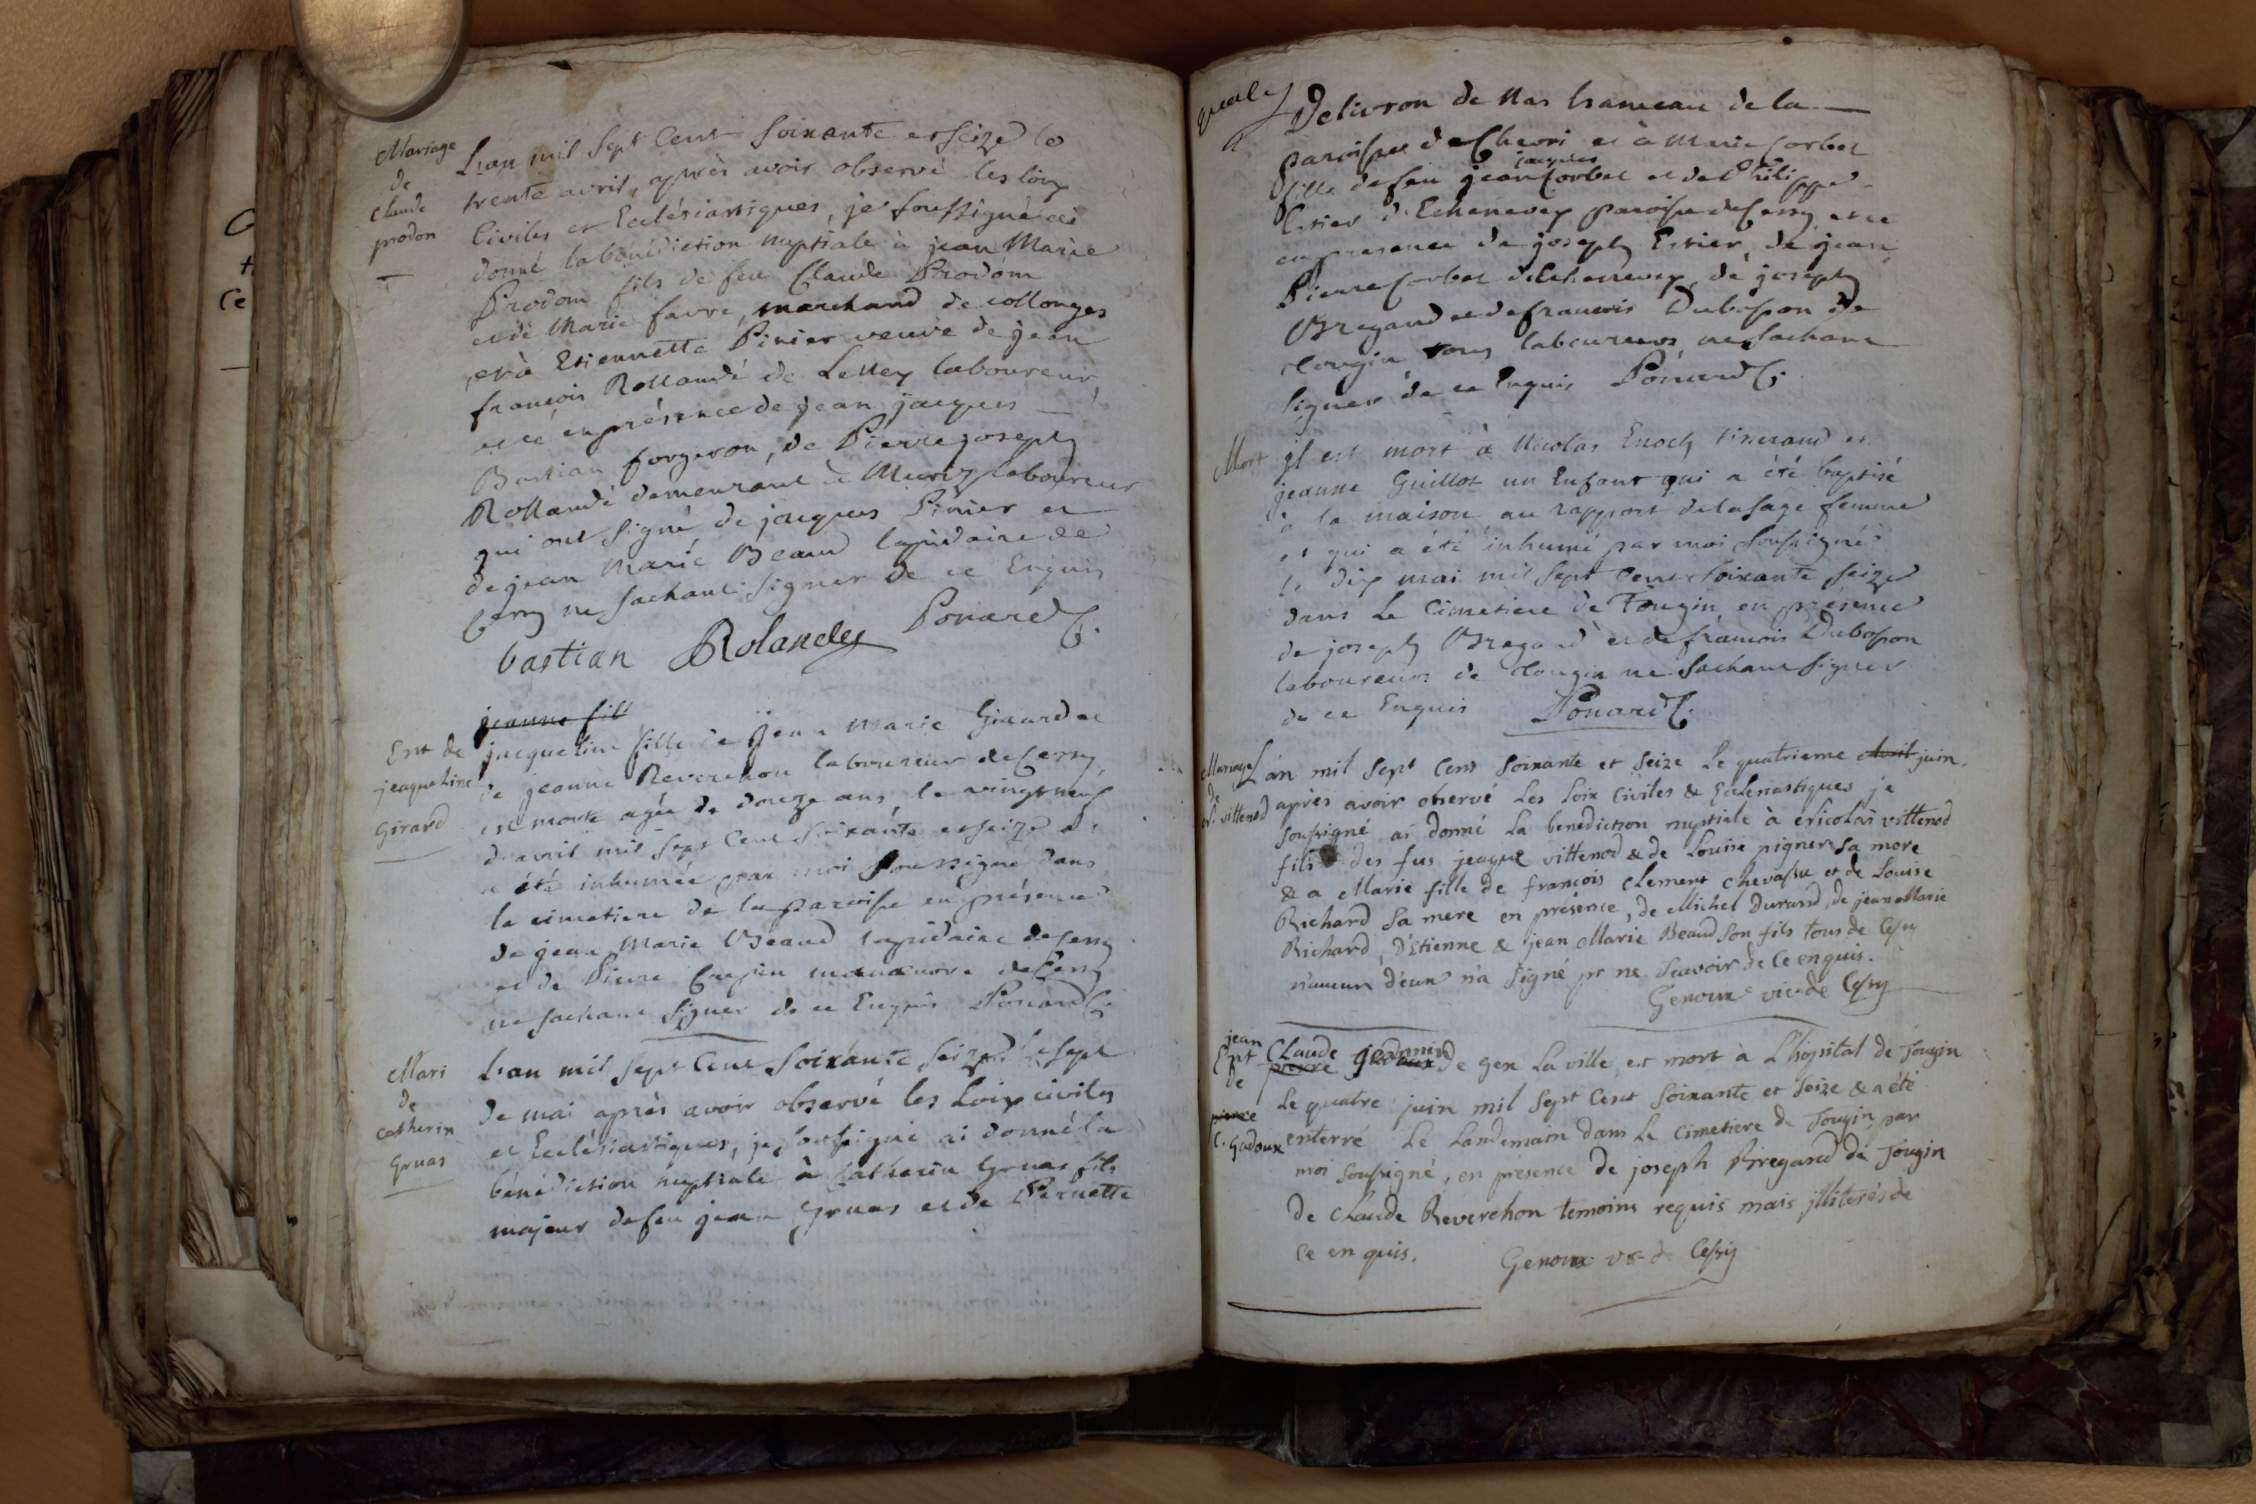 Mariage
de
Claude
prodon
L'an mil sept cent soixante et seize le
trente avril, après avoir observé les loix
Civiles et Ecclésiastiques, je soussigné ai
donné la bénédiction nuptiale à jean Marie
Prodom fils de feu Claude Prodom
et de Marie favre, marchand de collonges
et à Etiennette Pinier veuve de jean
françois Rollandé de Lelley laboureur,
et ce en présence de jean jacques
Bastian forgeron, de Pierre joseph
Rollandé demeurant à laboureur
qui ont signé de jacques Pinier et
de jean Marie Beaud lapidaire de
Cessy ne sachant signer de ce Enquis
bastian Rolandez Ponard C.
Ent de
jeaqueline
Girard
jeanne fill
jacqueline fille de jean Marie Girard et
de jeanne Reverchon laboureur de Cessy,
est morte agée de douze ans, le vingt neuf
d'avril mil sept Cent soixante et seize et
a été inhumée par moi soussigné dans
le cimetiere de la paroisse en présence
de jean Marie Beaud lapidaire de Cessy
et de Pierre Crepin manœuvre de Cessy
ne sachant signer de ce Enquis Ponard C.
Mari
de
Catherin
Gruas
L'an mil sept Cent soixante seize le sept
de mai après avoir observé les Loix civiles
et Ecclésiastiques, je soussigné ai donné la
bénédiction nuptiale à Catherin Gruas fils
majeur de feu jean Gruas et de Pernette
Delivron de Nas hameau de la
paroisse de Chevri et à Marie Corbet
jacques
fille de feu jean Corbet et de Philippe
Essier d'Echenevex paroisse de Cessy et ce
en presence de joseph Essier, de jean
Pierre Corbet d'Echenevex, de joseph
Bregand et de francois Dubosson de
tougin tous laboureurs ne sachant
signer de ce Enquis Ponard C.
Mort
il est mort à Nicolas Enoch tisserand et
jeanne Guillot un Enfant qui a été baptisé
à la maison au rapport de la sage femme
et qui a été inhumé par moi soussigné
le dix mai mil sept Cent soixante seize
dans Le Cimetiere de Tougin en présence
de joseph Bregand et de francois Dubosson
laboureurs de tougin ne sachant signer
de ce Enquis Ponard C.
Mariage
de
vittenod
L'an mil sept Cent soixante et seize Le quatrieme avril juin
après avoir observé Les Loix Civiles & Ecclesiastiques je
soussigné ai donné La benediction nuptiale à Nicolas vittenod
fils des fus jeaque vittenod & de Louise pignere sa mere
& a Marie fille de françois Clement Chevassu et de Louise
Richard sa mere en présence, de Michel Durand, de jean Marie
Richard, D'Etienne & jean Marie Beaud son fils tous de Cessy
n'aucun d'eux n'a signé pr ne sçavoir de ce enquis.
Genoux vic de Cessy
jean
Ent
de
pierre
C. Gadoux
Claude jeannin
pierre gadoux de gex La ville, est mort à L'hopital de Tougin
Le quatre juin mil sept Cent soixante et seize & a été
enterré Le Landemain dans Le Cimetiere de Tougin par
moi soussigné, en presence de joseph Bregand de Tougin
de Claude Reverchon temoins requis mais illiterés de
ce en quis.
Genoux vs de Cessy